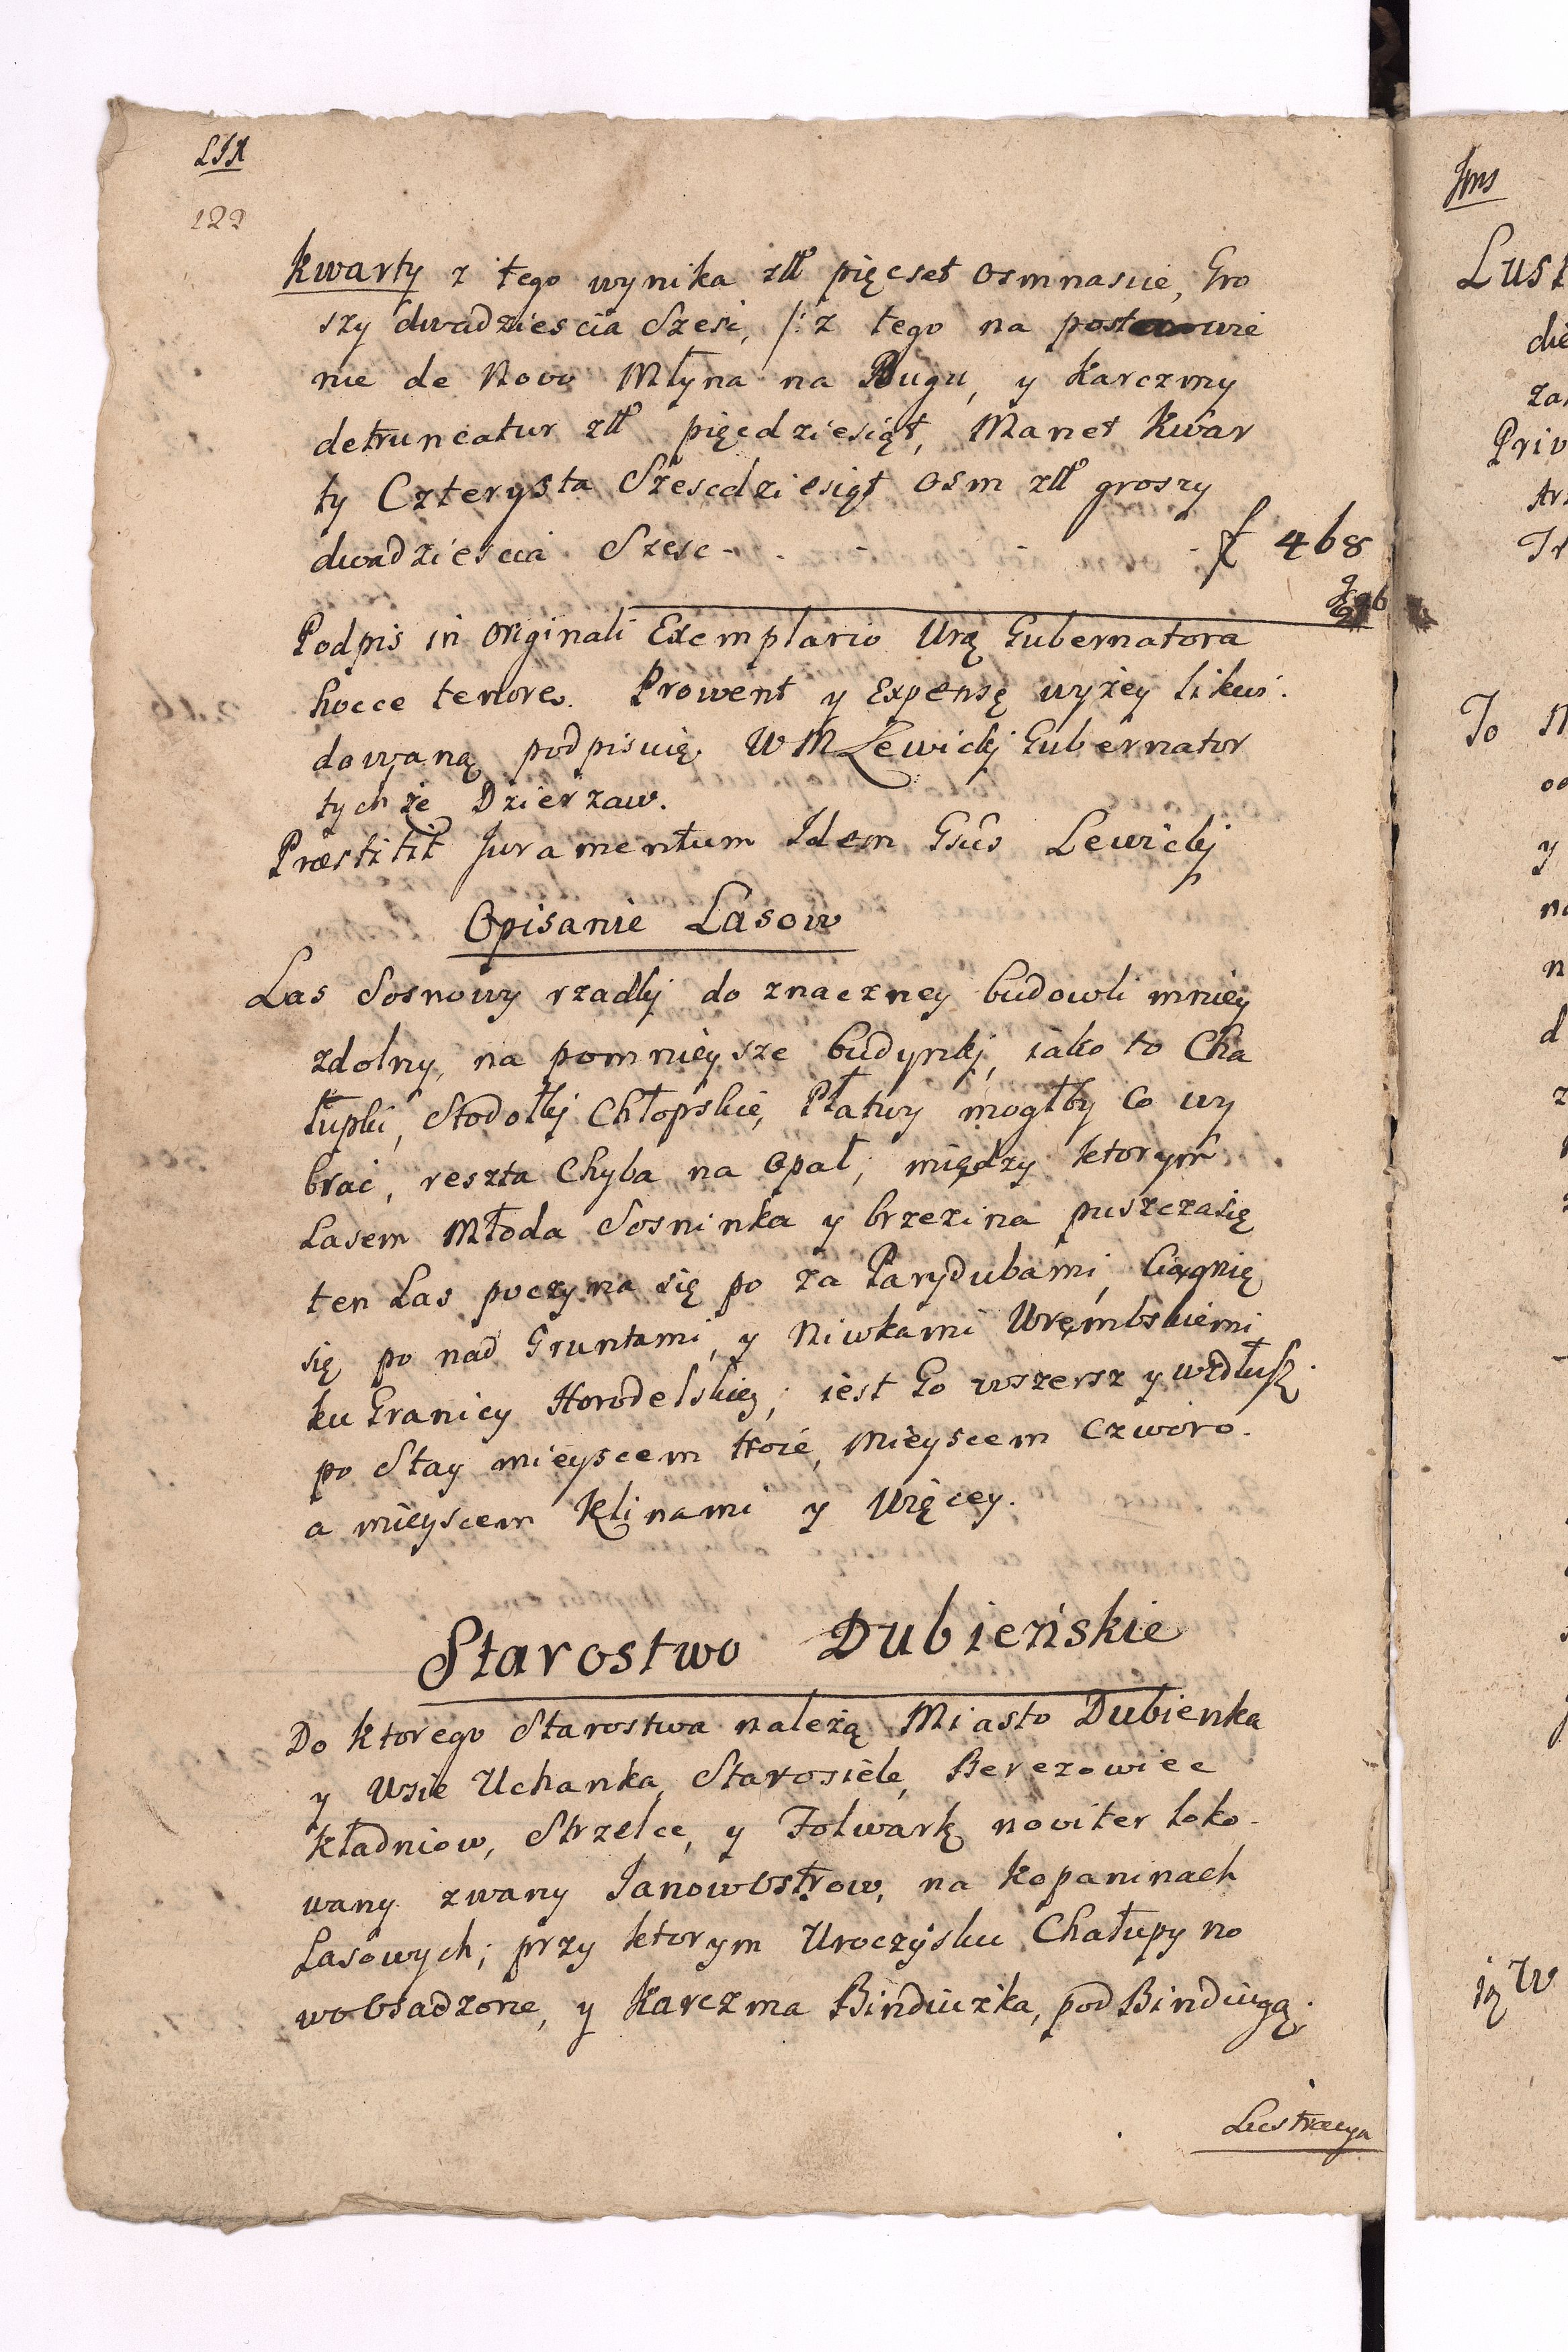 LIX
122
Kwarty z tego wynika złł pięcset osmnascie, Gro
szy dwadziescia Szesć, /: z tego na postanowie
nie de Novo Młyna na Bugu, y Karczmy
detruncatur złł pięcdziesiąt, Manet Kwar
ty Czterysta Szescdziesiąt osm złł groszy
dwadziescia Szesc - . - - f 468
g 26
Podpis in Originali Exemplario Urą Gubernatora
hocce tenore. Prowent y Expensę wyżey likwi.
dowaną podpisuię WM Lewickj Gubernator
tychże Dzierżaw.
Præstitit Juramentum Idem Gsus Lewickj
Opisanie Lasow
Las Sosnowy rzadkj do znaczney budowli mniey
zdolny, na pomnieysze budynkj, iako to Cha
łupki, Stodołkj Chłopskie, Płatwy mogłby co wy
brać, reszta Chyba na opał; między ktorym
Lasem Młoda Sosninka y brzezina puszczasię
ten Las poczyna się po za Parydubami, Ciągnię
się po nad Gruntami, y Niwkami Uręmbskiemi
ku Granicy Horodelskiey; iest Go wszersz y wzdłuſz
po Stay mieyscem troie, Mieyscem czworo.
a mieyscem Klinami y Więcey.
Starostwo Dubieńskie
Do ktorego Starostwa należą Miasto Dubienka
y Wsie Uchanka, Starosiele, Berezowiec
Kładniow, Strzelce, y Folwark noviter loko-
wany zwany Janow Ostrow, na Kopaninach
Lasowych; przy ktorym Uroczysku Chałupy no
wo Osadzone, y Karczma Bindiużka, pod Bindiugą.
Lustracya
Jms
Lust
die
zar
Priv
Ar
To
oc
y
na
n
d
z
W